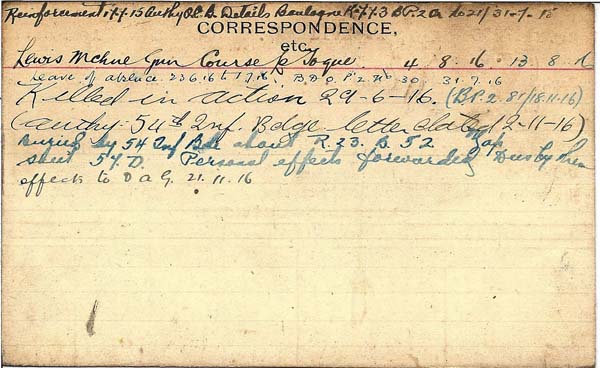 Reinforcement 17.7.15 Authy O.C. B. Details Boulogne K.773 B.P.2a No 21/31-7-15
CORRESPONDENCE,
etc.
Lewis Mchne Gun Course Le Toque 4 8.16. 13.8.16
Leave of absence 23 6 16 t 1 7.16. B.D.O.P.2. No 30. 31.7.16
Killed in action 29-6-16. (B.P.2. 81/18.11-16)
(authy:- 54th Inf. Bdge letter dated 2-11-16)
Buried by 54 Inf Bde about R.23. B. 52 Map
sheet 57.D. Personal effects forwarded
effects to D a G. 21.11.16